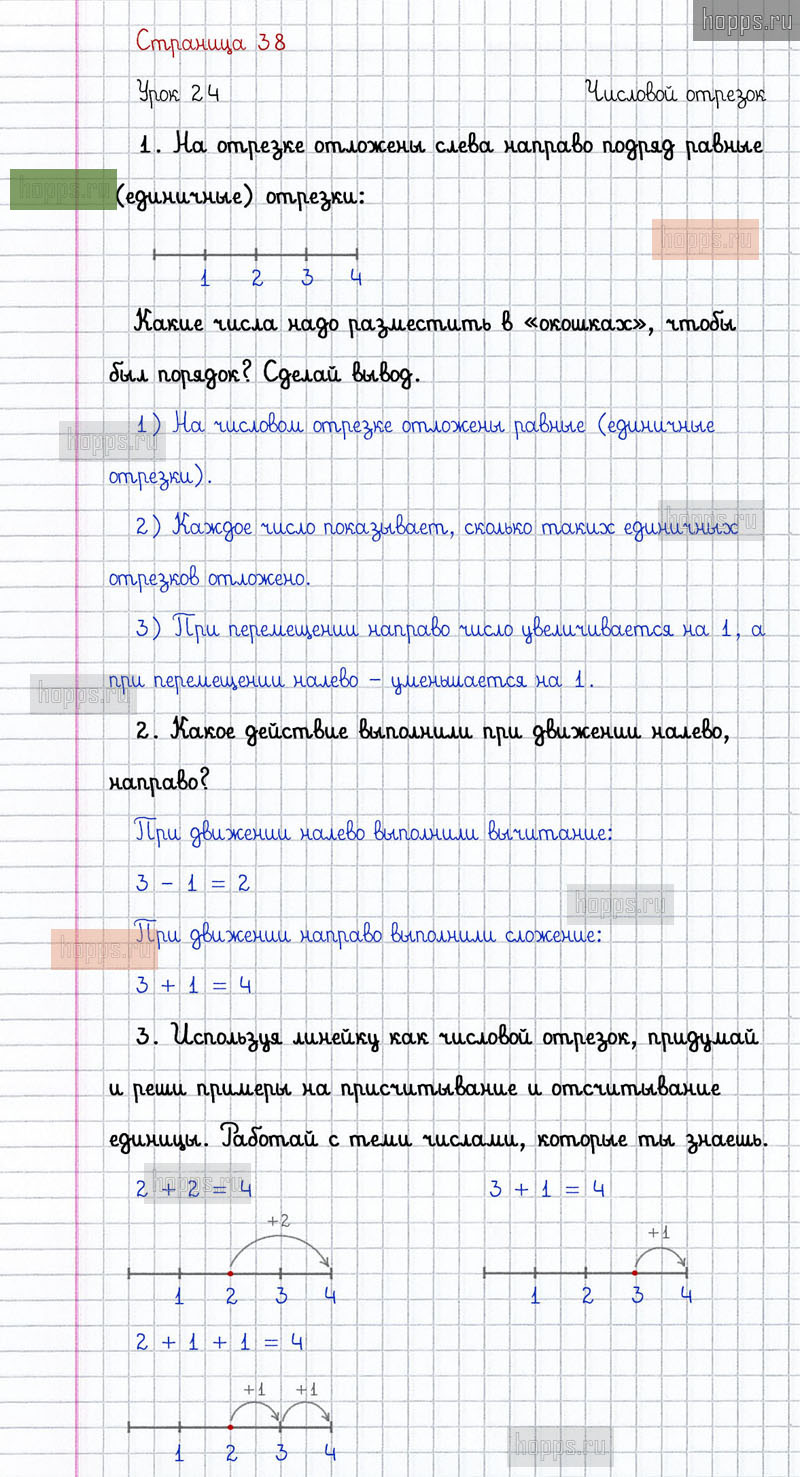 hopps.ru
Страница 38
Урок 24 Числовой отрезок
1. На отрезке отложены слева направо подряд равные
hopps.ru
(единичные) отрезки:
hopps.ru
1 2 3 4
Какие числа надо разместить в «окошках», чтобы
был порядок? Сделай вывод.
1) На числовом отрезке отложены равные (единичные
hopps.ru
отрезки).
2) Каждое число показывает, сколько таких единичных
hopps.ru
отрезков отложено.
3) При перемещении направо число увеличивается на 1, а
при перемещении налево – уменьшается на 1.
hopps.ru
2. Какое действие выполнили при движении налево,
направо?
При движении налево выполнили вычитание:
3 - 1 = 2
hopps.ru
При движении направо выполнили сложение:
hopps.ru
3 + 1 = 4
3. Используя линейку как числовой отрезок, придумай
и реши примеры на присчитывание и отсчитывание
единицы. Работай с теми числами, которые ты знаешь.
2 + 2 = 4 3 + 1 = 4
hopps.ru
+2 +1
1 2 3 4 1 2 3 4
2 + 1 + 1 = 4
+1 +1
1 2 3 4
hopps.ru